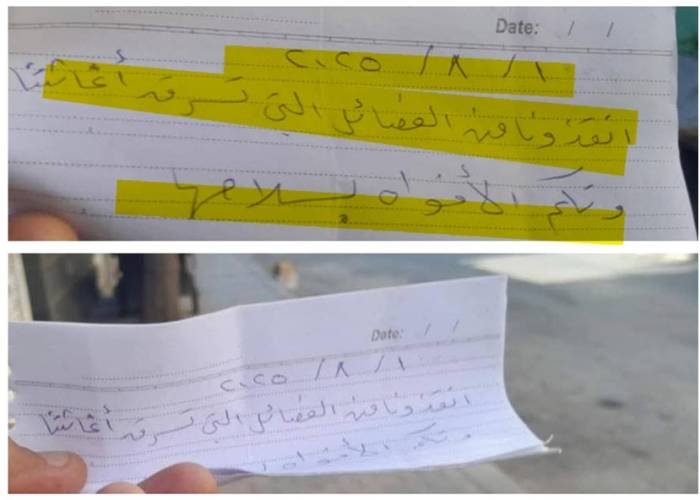 Date: / /
٢٠٢٥ / ٨ / ١
انقذونا من الفصائل التي تسرق أغاثتنا
وتكم الأفواه بسلاحها
Date: / /
٢٠٢٥ / ٨ / ١
انقذونا من الفصائل التي تسرق أغاثتنا
وتكم الأفواه